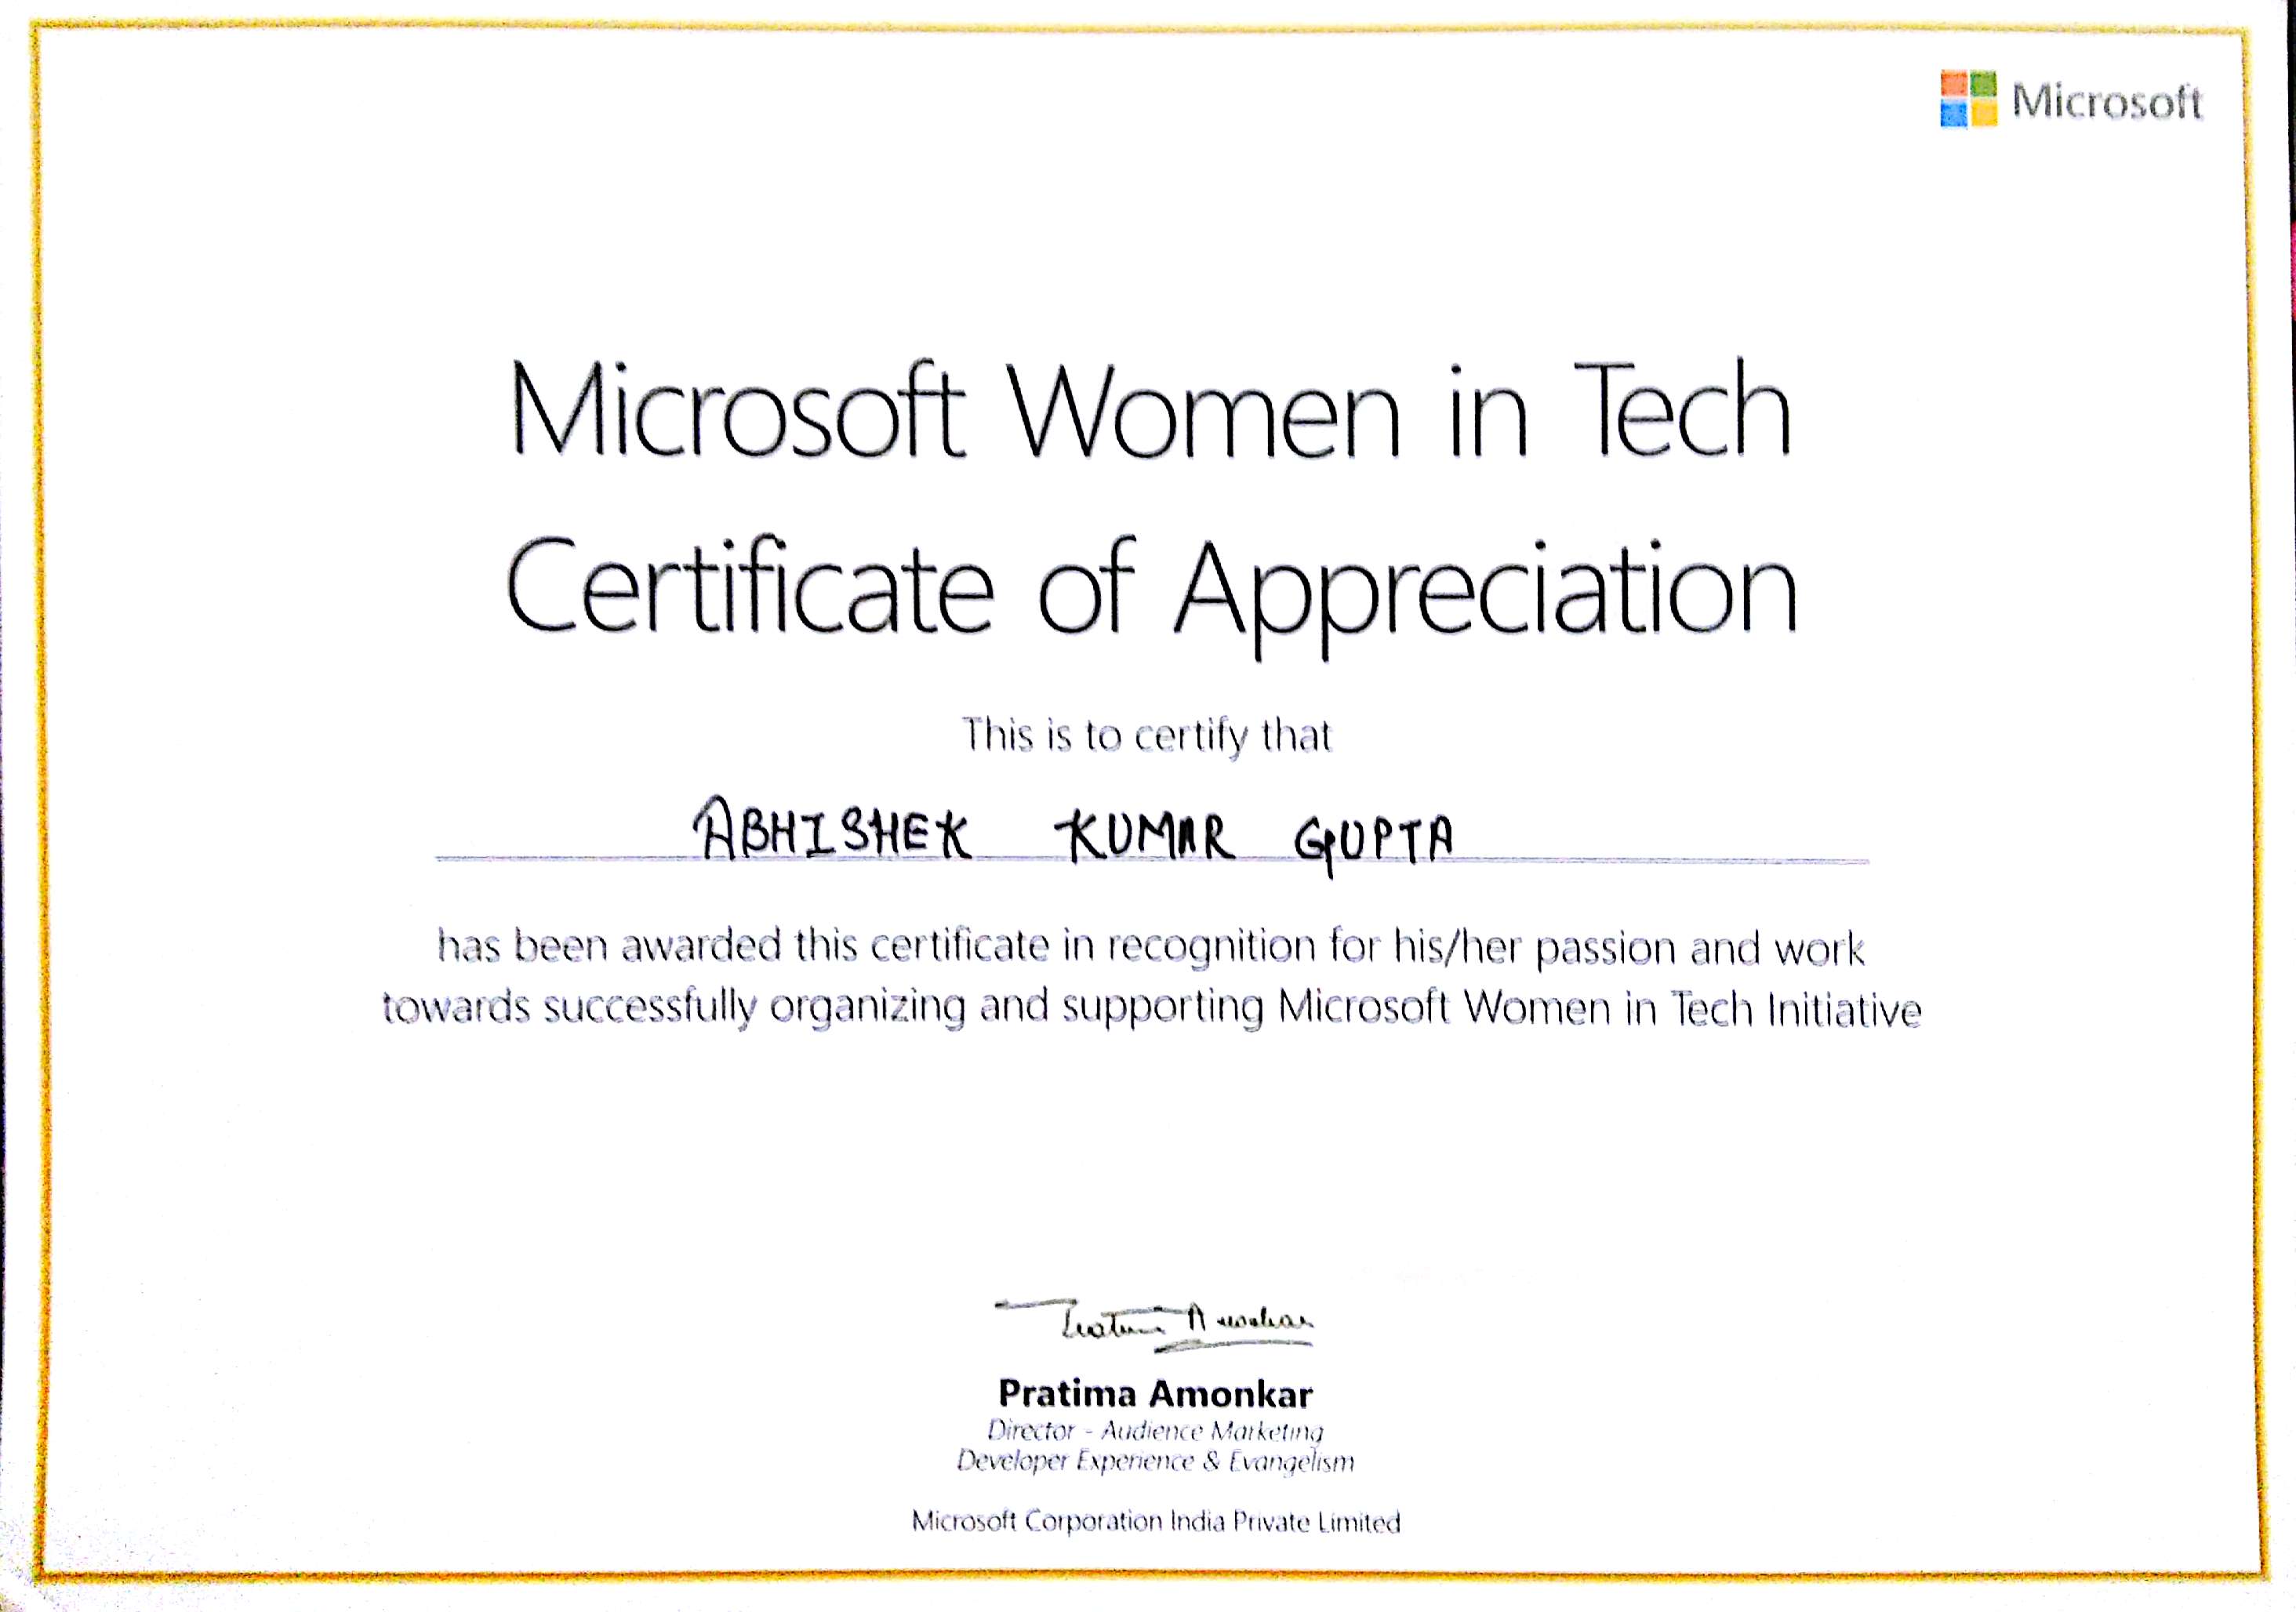 Microsoft
Microsoft Women in Tech
Certificate of Appreciation
This is to certify that
ABHISHEK KUMAR GUPTA
has been awarded this certificate in recognition for his/her passion and work
towards successfully organizing and supporting Microsoft Women in Tech Initiative
Pratima Amonkar
Pratima Amonkar
Director - Audience Marketing
Developer Experience & Evangelism
Microsoft Corporation India Private Limited